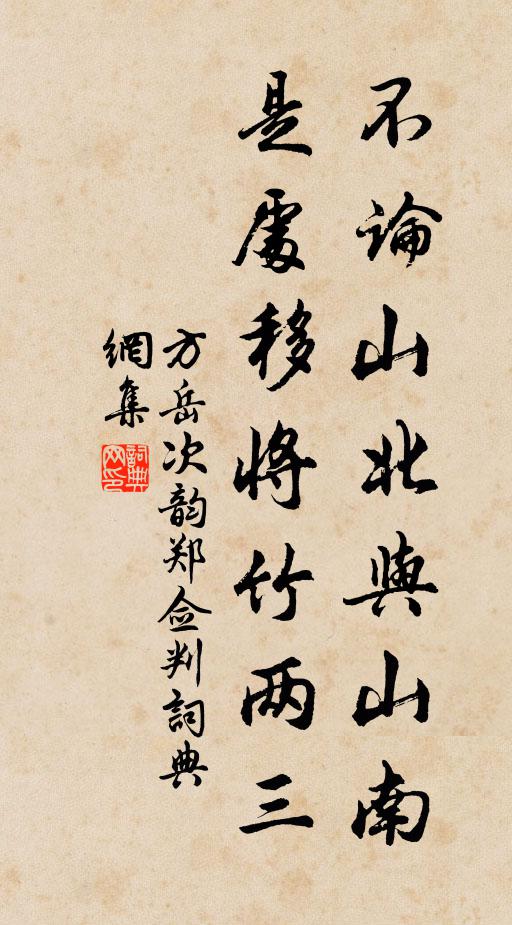 不論山北與山南
是處移將竹两三
方岳次韵郑佥判詞典
網集
詞典
网印